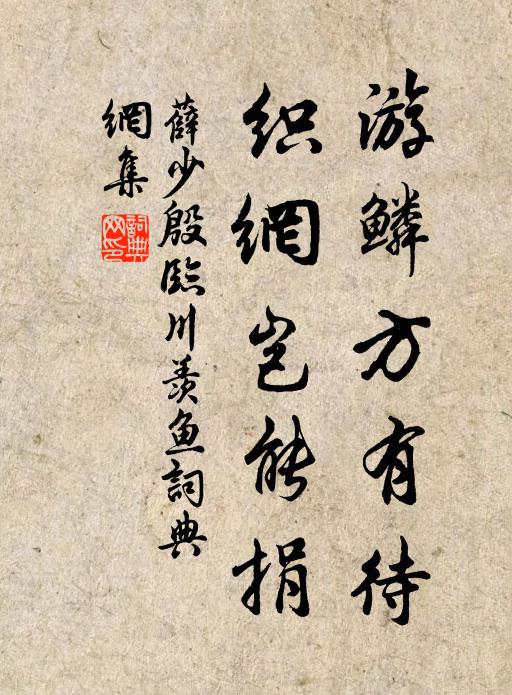 游鱗方有待
织網岂能捐
薛少殷臨川羡魚詞典
網集
詞典网印